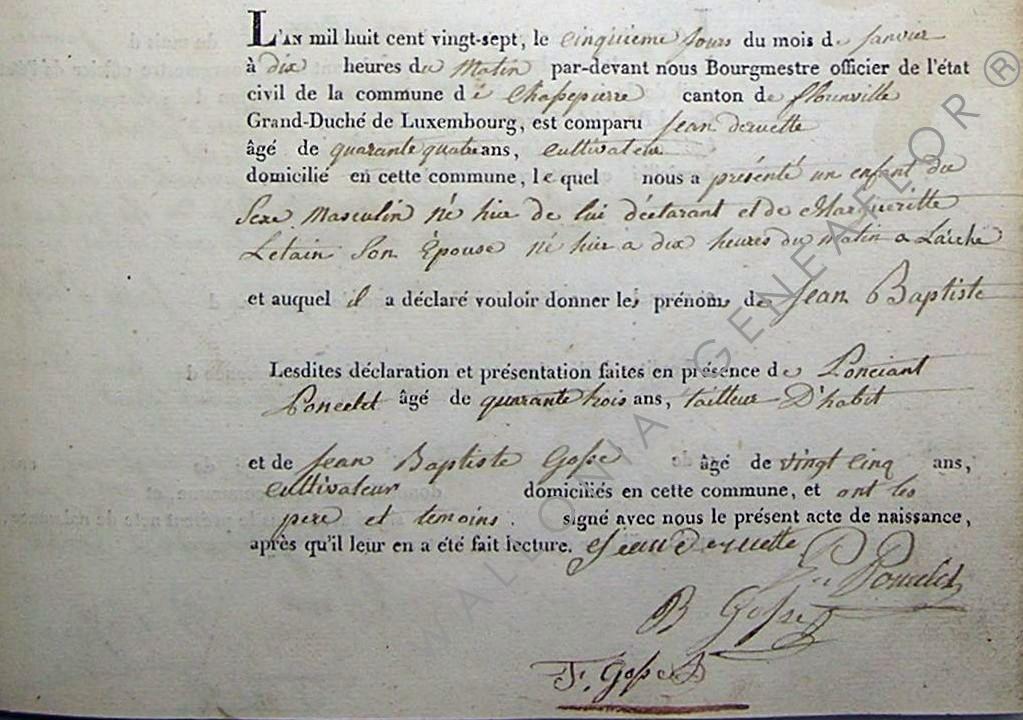 L'AN mil huit cent vingt-sept, le cinquieme jour du mois de janvier
à dix heures du Matin par-devant nous Bourgmestre officier de l'état
civil de la commune de Chassepierre canton de flounville
Grand-Duché de Luxembourg, est comparu Jean deruette
âgé de quarante quatre ans, cultivateur
domicilié en cette commune, lequel nous a présenté un enfant du
Sexe Masculin né hier de lui déclarant et de Margueritte
Letain Son Épouse né hier a dix heures du matin a Laiche
et auquel il a déclaré vouloir donner les prénoms de Jean Baptiste
Lesdites déclaration et présentation faites en présence de Ponciant
Poncelet âgé de quarante trois ans, tailleur D'habit
et de Jean Baptiste Gosse âgé de vingt cinq ans,
cultivateur domiciliés en cette commune, et ont les
pere et temoins. signé avec nous le présent acte de naissance,
après qu'il leur en a été fait lecture. Jean Deruette
Poncelet
B Gosse
F. Gosse
WALLONIA GENEAFLOR ®